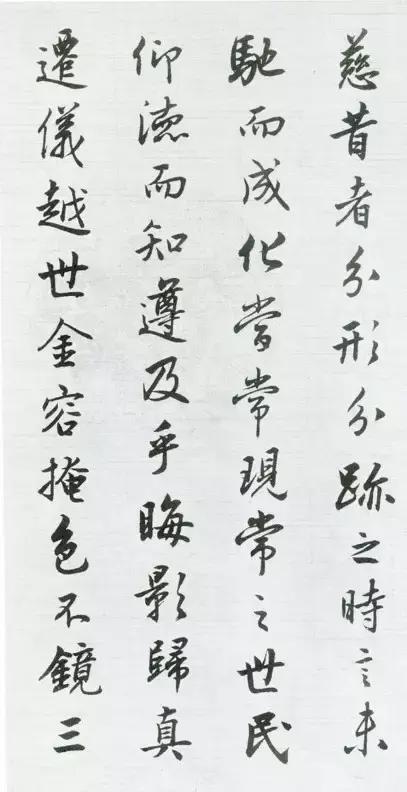 慈昔者分形分跡之時言未
馳而成化當常現常之世民
仰德而知遵及乎晦影歸真
遷儀越世金容掩色不鏡三